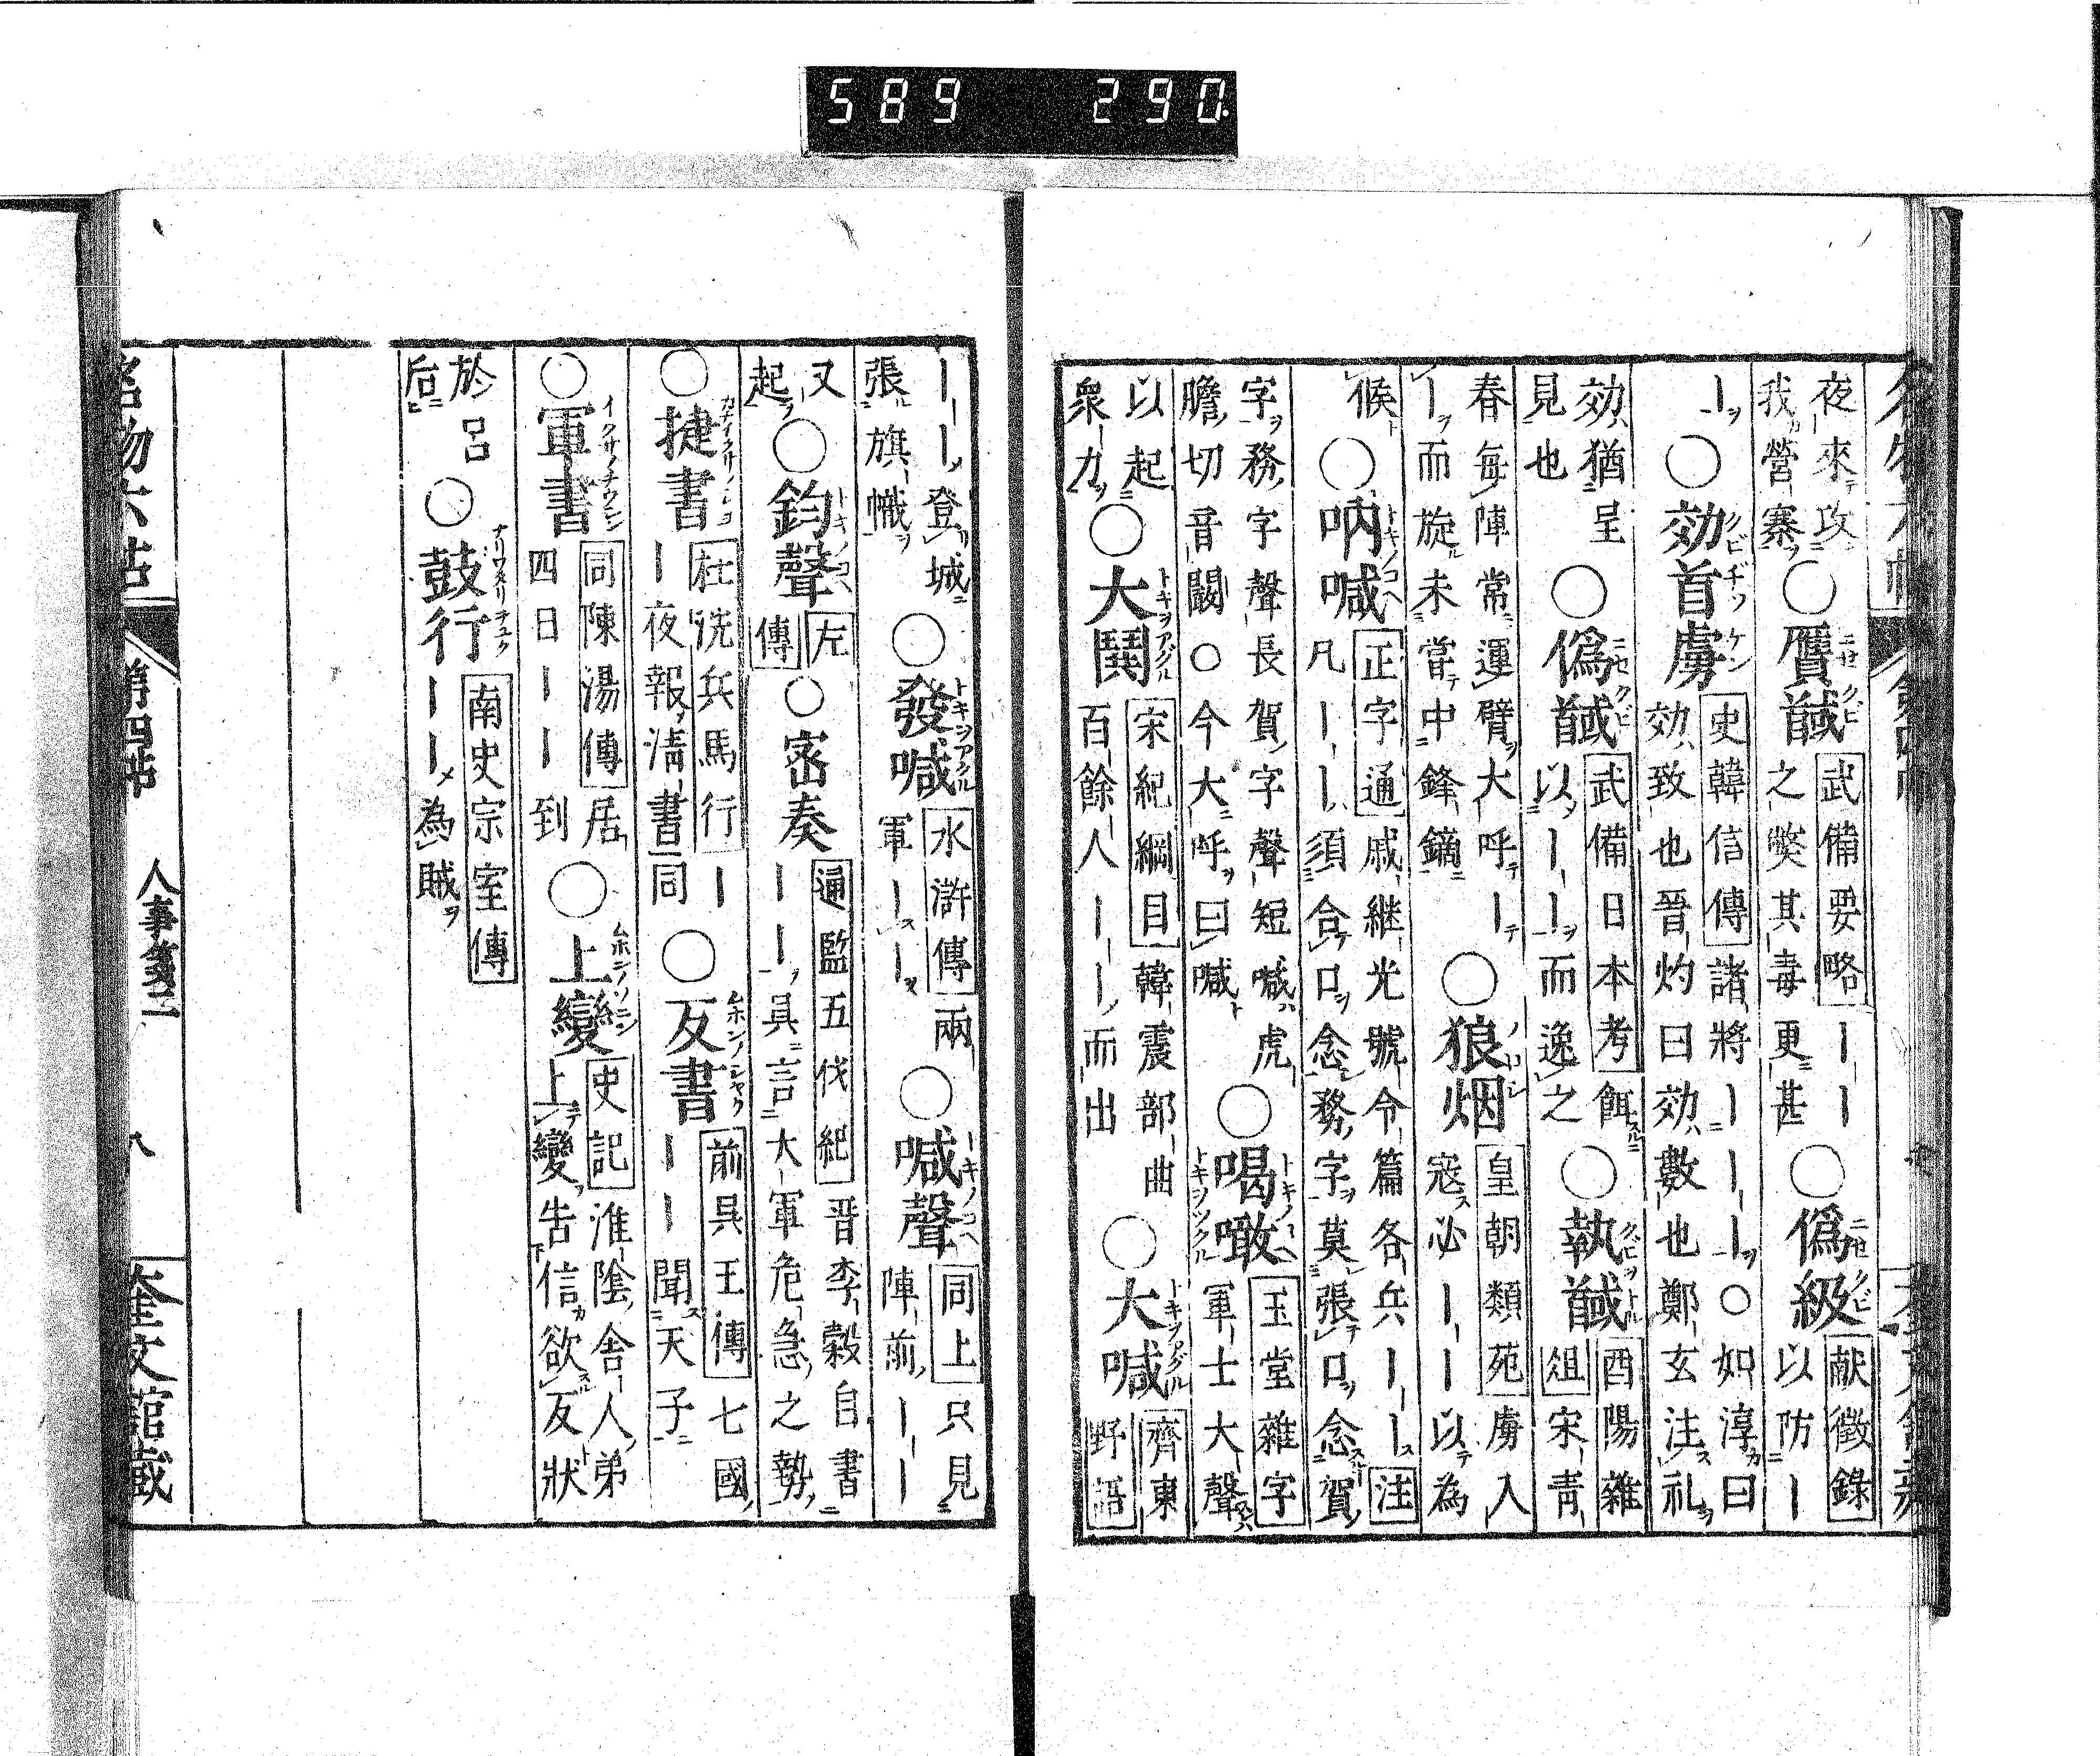 589 290
夜來攻我營寨○贋馘武備要略ーー之獘其毒更甚○僞級献徵錄以防ー
ー○効首虜史韓信傳諸將ーーー○如淳曰効致也晉灼曰効數也鄭玄注礼
効猶呈見也○僞馘武備日本考餌以ーー而逸之○執馘酉陽雜俎宋青
春每陣常運臂大呼ーー而旋未甞中鋒鏑○狼烟皇朝類苑虜入寇必ーー以為
候○吶喊正字通戚継光號令篇各兵ーー注凡ーー須合口念務字莫張口念賀
字務字聲長賀字聲短喊虎膽切音闞○今大呼曰喊○喝噉玉堂雜字軍士大聲
以起衆力○大鬨宋紀綱目韓震部曲百餘人ーー而出○大喊齊東野語
ーーー登城張旗幟○發喊水滸傳兩軍ーー○喊聲同上只見陣前ーー
又起○鈞聲左傳○密奏通監五伐紀晋李穀自書ーー具言大軍危急之勢
○捷書杜洗兵馬行ーー夜報淸書同○反書前呉王傳七國ーー聞天子
○軍書同陳湯傳居四日ーー到○上變史記淮隂舎人弟上變告信欲反狀
於呂后○鼓行南史宗室傳ーー為賊
名物六帖 第四帖 人事箋三 八 奎文舘藏